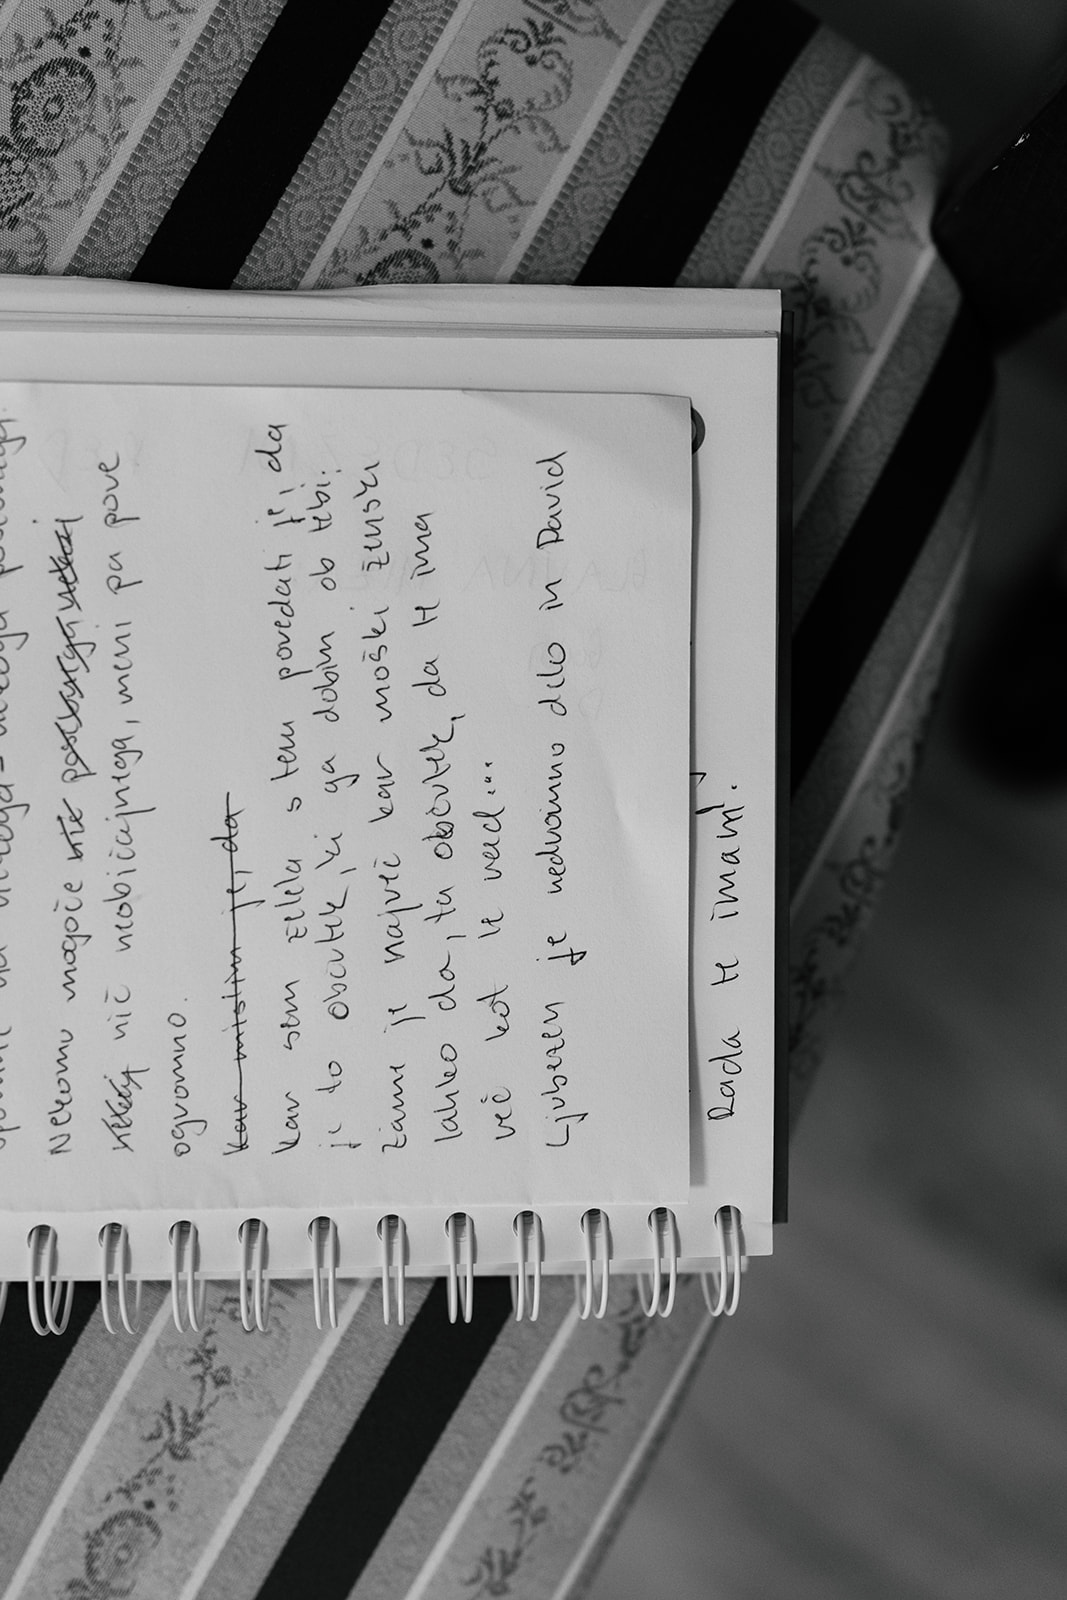 Nekomu mogoče kte posluhuja
nič neobičajnega, meni pa pove
ogromno.
kar mislim je, da
kar sem želela s tem povedati je, da
je to občutek, ki ga dobim ob tebi.
Zame je največ kar moški ženski
lahko da, ta občutek, da te ima
več kot le rad...
Ljubezen je nedvomno delo in David
Rada te imam!